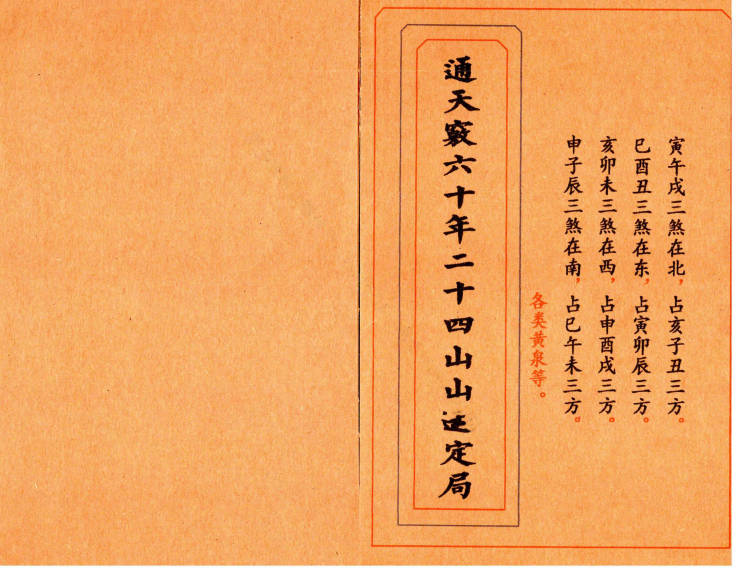 寅午戌三煞在北，占亥子丑三方。
巳酉丑三煞在东，占寅卯辰三方。
亥卯未三煞在西，占申酉戌三方。
申子辰三煞在南，占巳午未三方。
各类黄泉等。
通天竅六十年二十四山山定局